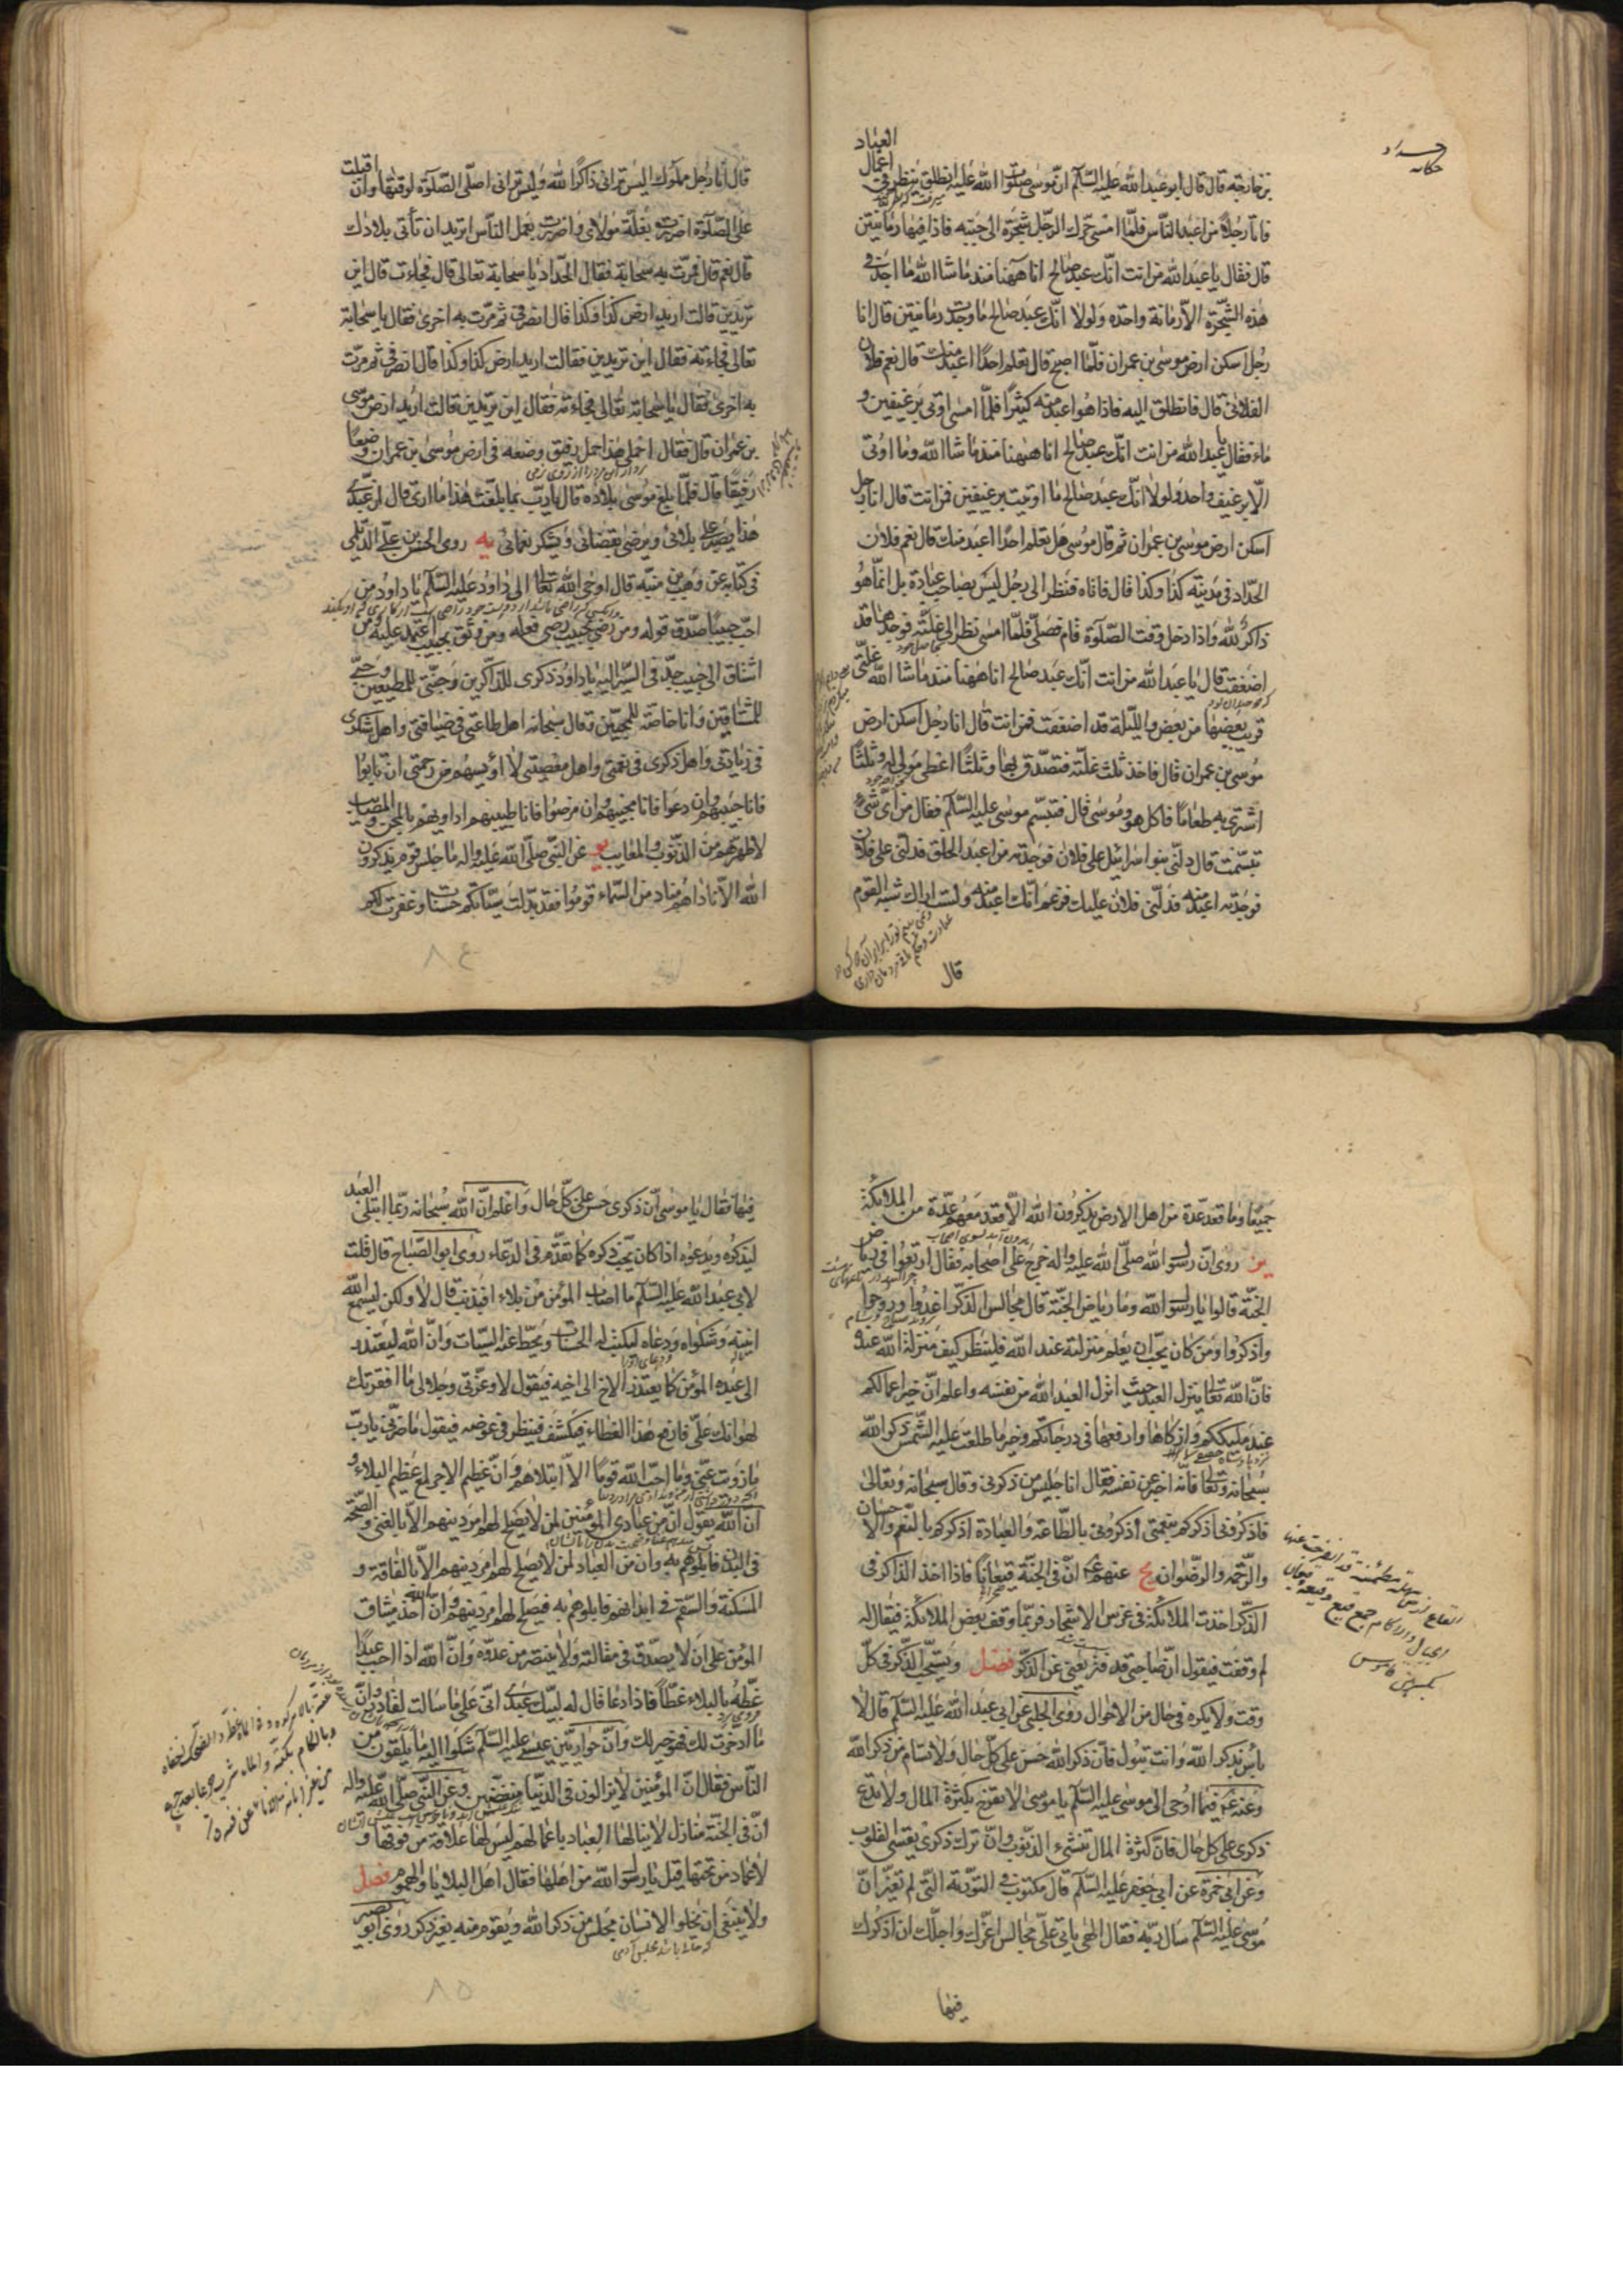 العباد
بن خارجة قال قال ابو عبد الله عليه السلام ان موسى صلوات الله عليه انطلق ينظر في اعمال
فاتا رجلا من اعبد الناس فلما امسى حرك الرجل شجرة الى جنبه فاذا فيها رمانتين
قال فقال يا عبد الله من انت انك عبد صالح انا ههنا منذ ما شا الله ما اجد في
هذه الشجرة الا رمانة واحدة ولولا انك عبد صالح ما وجدت رمانتين قال انا
رجل اسكن ارض موسى بن عمران فلما اصبح قال تعلم احدا اعبد منك قال نعم فلان
الفلانى قال فانطلق اليه فاذا هو اعبد منه كثيرا فلما امسى اوتى برغيفين و
ماء فقال يا عبد الله من انت انك عبد صالح انا ههنا منذ ما شا الله وما اوتى
الا برغيف واحد ولولا انك عبد صالح ما اوتيت برغيفين فمن انت قال انا رجل
اسكن ارض موسى بن عمران ثم قال موسى هل تعلم احدا اعبد منك قال نعم فلان
الحداد فى مدينة كذا وكذا قال فاتاه فنظر الى رجل ليس بصاحب عبادة بل انما هو
ذاكر لله واذا دخل وقت الصلوة قام فصلى فلما امسى نظر الى غلته فوجدها قد
اضعفت قال يا عبد الله من انت انك عبد صالح انا ههنا منذ ما شا الله غلتى
قريب بعضها من بعض والليلة قد اضعفت فمن انت قال انا رجل اسكن ارض
موسى بن عمران قال فاخذ ثلث غلته فتصدق بها وثلثا اعطى مولى له وثلثا
اشترى به طعاما فاكل هو وموسى قال فتبسم موسى عليه السلام فقال من اى شئ
تبسمت قال دلنى بنو اسرائيل على فلان فوجدته من اعبد الخلق فدلنى على فلان
فوجدته اعبد منه فدلنى فلان عليك فزعم انك اعبد منه ولست اراك شبه القوم
قال
قال انا رجل مملوك اليس ترانى ذاكرا لله وليس ترانى اصلى الصلوة لوقتها وان اقبلت
على الصلوة اضررت بغلة مولاى واضررت بعمل الناس اتريد ان تأتى بلادك
قال نعم قال فمرت به سحابة فقال الحداد يا سحابة تعالى قال فجاءت قال اين
تريدين قالت اريد ارض كذا وكذا قال انصرفى ثم مرت به اخرى فقال يا سحابة
تعالى فجاءته فقال اين تريدين فقالت اريد ارض كذا وكذا قال انصرفى ثم مرت
به اخرى فقال يا سحابة تعالى فجاءته فقال اين تريدين قالت اريد ارض موسى
بن عمران قال فقال احملى هذا حمل رفيق وضعه فى ارض موسى بن عمران وضعا
رفيقا قال فلما بلغ موسى بلاده قال يا رب بما بلغت هذا ما ارى قال ان عبدى
هذا يصبر على بلائى ويرضى بقضائى ويشكر نعمائى يه روى الحسن بن على الديلمى
فى كتابه عن وهب بن منبه قال اوحى الله تعالى الى داود عليه السلام يا داود من
احب حبيبا صدق قوله ومن رضى بحبيب رضى فعله ومن وثق بحبيب اعتمد عليه ومن
اشتاق الى حبيب جد فى السير اليه يا داود ذكرى للذاكرين وجنتى للمطيعين وحبى
للمشتاقين وانا خاصة للمحبين وقال سبحانه اهل طاعتى فى ضيافتى واهل شكرى
فى زيادتى واهل ذكرى فى نعمتى واهل معصيتى لا اويسهم من رحمتى ان تابوا
فانا حبيبهم وان دعوا فانا مجيبهم وان مرضوا فانا طبيبهم اداويهم بالمحن والمصايب
لاطهرهم من الذنوب والمعايب يو عن النبى صلى الله عليه واله ما جلس قوم يذكرون
الله الا ناداهم مناد من السماء قوموا فقد بدلت سيئاتكم حسنات وغفرت لكم
٨٤
جميعا وما قعد عدة من اهل الارض يذكرون الله الا قعد معهم عدة من الملائكة
يز روى ان رسول الله صلى الله عليه واله خرج على اصحابه فقال ارتعوا فى رياض
الجنة قالوا يا رسول الله وما رياض الجنة قال مجالس الذكر اغدوا وروحوا
واذكروا ومن كان يحب ان يعلم منزلته عند الله فلينظر كيف منزلة الله عنده
فان الله تعالى ينزل العبد حيث انزل العبد الله من نفسه واعلم ان خير اعمالكم
عند مليككم وازكاها وارفعها فى درجاتكم وخير ما طلعت عليه الشمس ذكر الله
سبحانه وتعالى فانه اخبر عن نفسه فقال انا جليس من ذكرنى وقال سبحانه وتعالى
فاذكرونى اذكركم بنعمتى اذكرونى بالطاعة والعبادة اذكركم بالنعم والاحسان
والرحمة والرضوان يح عنهم ع ان فى الجنة قيعانا فاذا اخذ الذاكر فى
الذكر اخذت الملائكة فى غرس الاشجار فربما وقف بعض الملائكة فيقال له
لم وقفت فيقول ان صاحبى قد فتر يعنى عن الذكر فصل ويستحب الذكر فى كل
وقت ولا يكره فى حال من الاحوال روى الحلبى عن ابى عبد الله عليه السلام قال لا
باس بذكر الله وانت تبول فان ذكر الله حسن على كل حال ولا تسام من ذكر الله
وعنه ع فيما اوحى الى موسى عليه السلام يا موسى لا تفرح بكثرة المال ولا تدع
ذكرى على كل حال فان كثرة المال تنسى الذنوب وان ترك ذكرى يقسى القلوب
وعن ابى حمزة عن ابى جعفر عليه السلام قال مكتوب فى التورية التى لم تغير ان
موسى عليه السلام سال ربه فقال الهى ياتى على مجالس اعزك واجلك ان اذكرك
فيها
فيها فقال يا موسى ان ذكرى حسن على كل حال واعلم ان الله سبحانه ربما ابتلى العبد
ليذكره ويدعوه اذا كان يحب ذكره كما تقدم فى الدعاء روى ابو الصباح قال قلت
لابى عبد الله عليه السلام ما اصاب المؤمن من بلاء افبذنب قال لا ولكن ليسمع الله
انينه وشكواه ودعاه ليكتب له الحسنات ويحط عنه السيئات وان الله ليعتذر
الى عبده المؤمن كما يعتذر الاخ الى اخيه فيقول لا وعزتى وجلالى ما افقرتك
لهوانك على فارفع هذا الغطاء فيكشف فينظر فى عوضه فيقول ما ضرنى يا رب
ما زويت عنى وما احب الله قوما الا ابتلاهم وان عظيم الاجر لمع عظيم البلاء و
ان الله يقول ان من عبادى المؤمنين لمن لا يصلح لهم امر دينهم الا بالغنى والصحة
فى البدن فابلوهم به وان من العباد لمن لا يصلح لهم امر دينهم الا بالفاقة و
المسكنة والسقم فى ابدانهم فابلوهم به فيصلح لهم امر دينهم وان الله اخذ ميثاق
المؤمن على ان لا يصدق فى مقالته ولا ينتصر من عدوه وان الله اذا احب عبدا
غطه بالبلاء غطا فاذا دعا قال له لبيك عبدى انى على ما سالت لقادر وان
ما ادخرت لك فهو خير لك وان حواريين عيسى عليه السلام شكوا اليه ما يلقون من
الناس فقال ان المؤمنين لا يزالون فى الدنيا منغضين وعن النبى صلى الله عليه واله
ان فى الجنة منازل لا ينالها العباد باعمالهم ليس لها علاقة من فوقها و
لا عماد من تحتها قيل يا رسول الله من اهلها فقال اهل البلايا والهموم فصل
ولا ينبغى ان يخلو الانسان مجلس من ذكر الله ويقوم منه بغير ذكر روى ابو بصير
٨٥